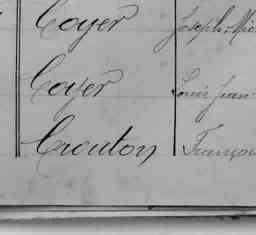 Coyer Joseph-Mic
Coyer Louis Jean-
Crouton Françoi